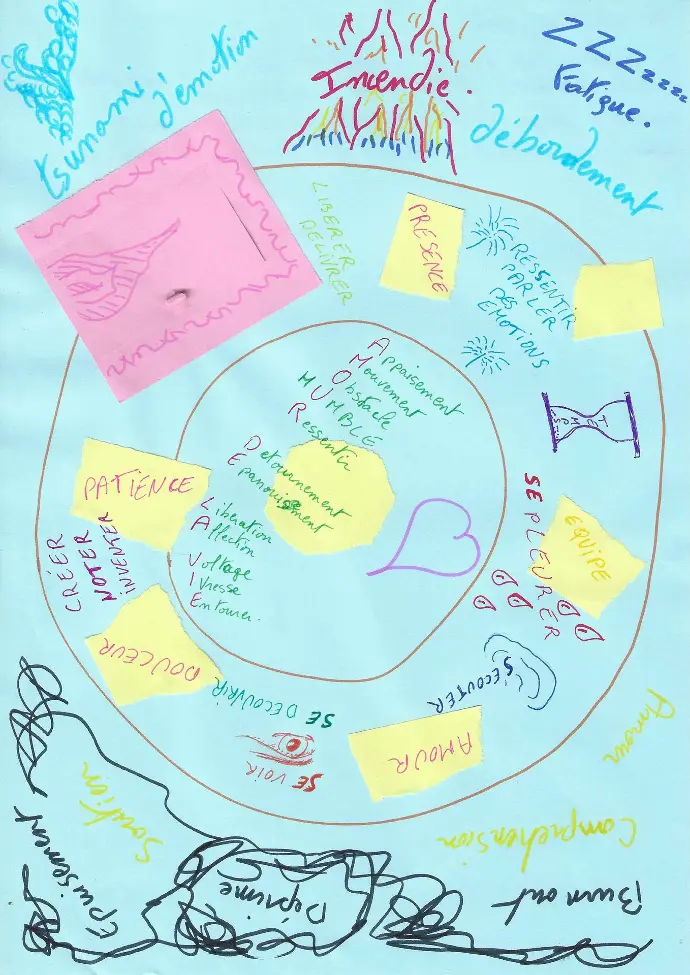 tsunami
d'émotion
Incendie.
ZZZzzzzz
Fatigue.
débordement
LIBERER
DELIVRER
PRESENCE
RESSENTIR
PARLER
DES
EMOTIONS
Appaisement
Mouvement
Obstacle
HUMBLE
Ressentir
Detournement
Epanouissement
Liberation
Affection
Voltage
IVresse
Entourer.
PATIENCE
CRÉER
NOTER
INVENTER
DOUCEUR
SE DECOUVRIR
SE VOIR
AMOUR
S'ECOUTER
SE PLEURER
EQUIPE
Amour
Compréhension
Soution
Burn out
Déprime
Epuisement